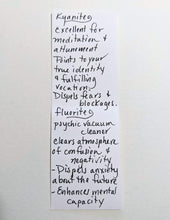 Kyanite
excellent for
meditation &
attunement
Points to your
true identity
& fulfilling
vocation
Dispels fears &
blockages.
fluorite
psychic vacuum
cleaner
clears atmosphere
of confusion &
negativity
- Dispels anxiety
about the future
- Enhances mental
capacity